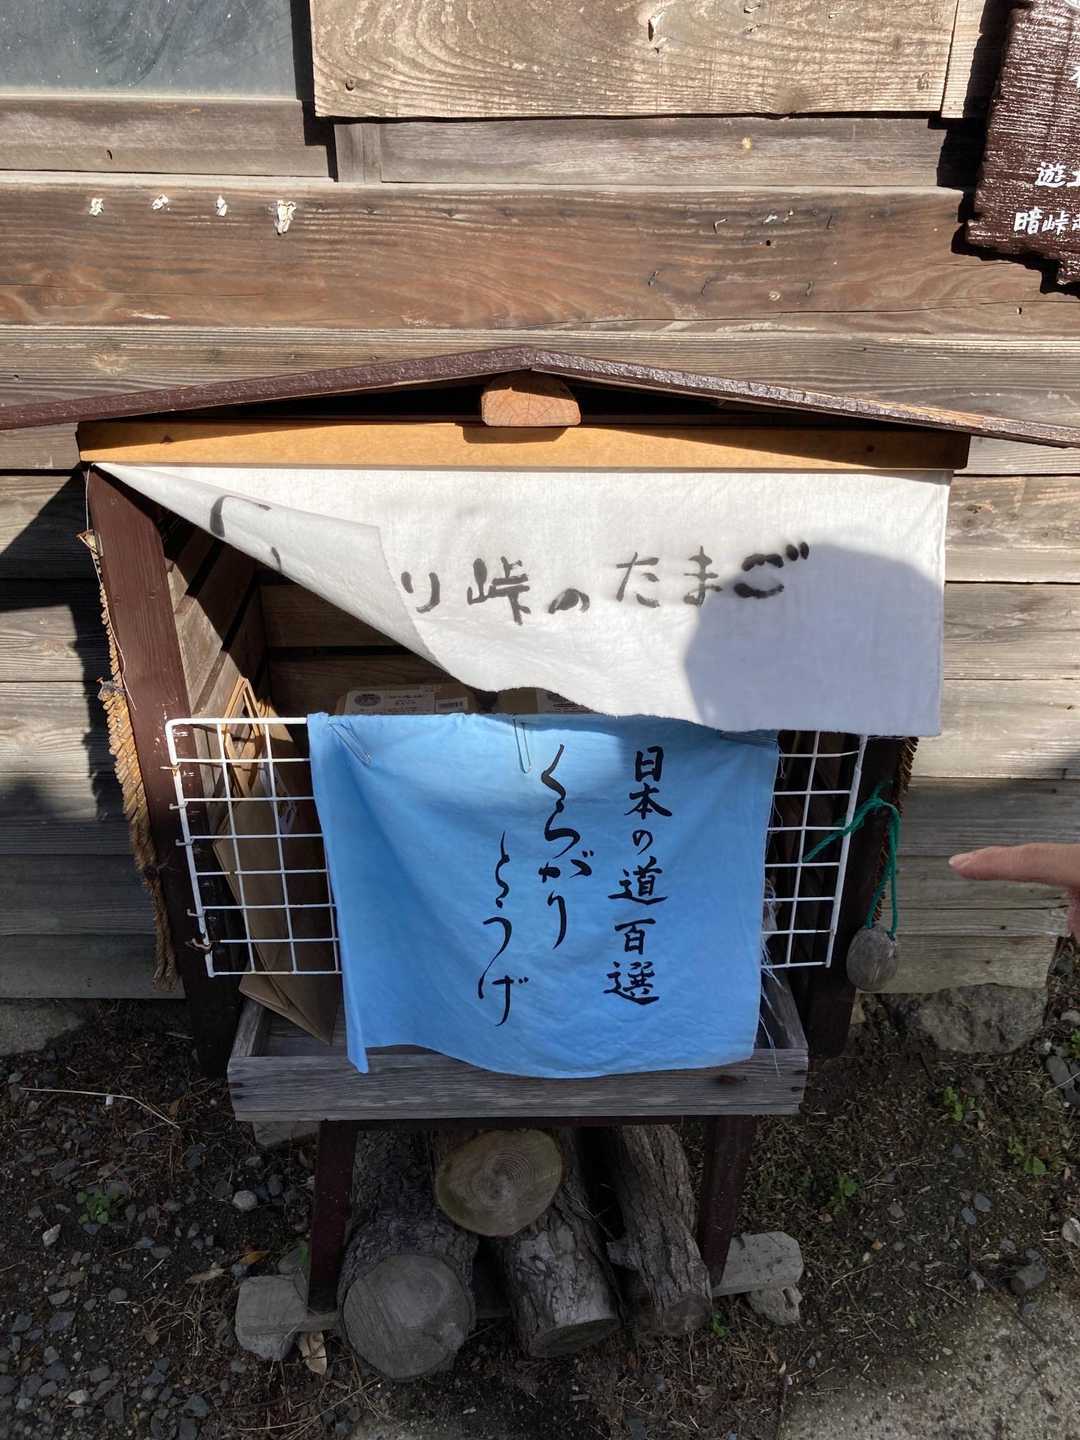 遊
暗峠
り峠のたまご
日本の道百選
くらがり
とうげ